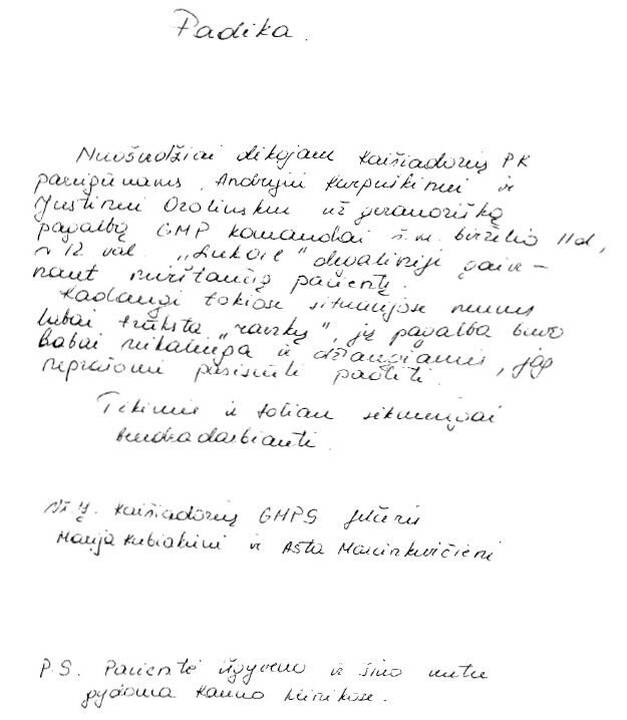 Padėka.
Nuoširdžiai dėkojam Kaišiadorių PK
pareigūnams Andrejui Karpuškinui ir
Justinui Ozolinskui už geranorišką
pagalbą GMP komandai š.m. birželio 11d,
~ 12 val. „Lukoil" degalinėje gaivi-
nant mirštančią pacientę.
Kadangi tokiose situacijose mums
labai trūksta „rankų", jų pagalba buvo
labai reikalinga ir džiaugiamės, jog
neprašomi pasisiūlė padėti.
Tikimės ir toliau sėkmingai
bendradarbiauti.
Kaišiadorių GMPS felčerės
Marija Kubiakienė ir Asta Marcinkevičienė
P.S. Pacientė išgyveno ir šiuo metu
gydoma Kauno klinikose.